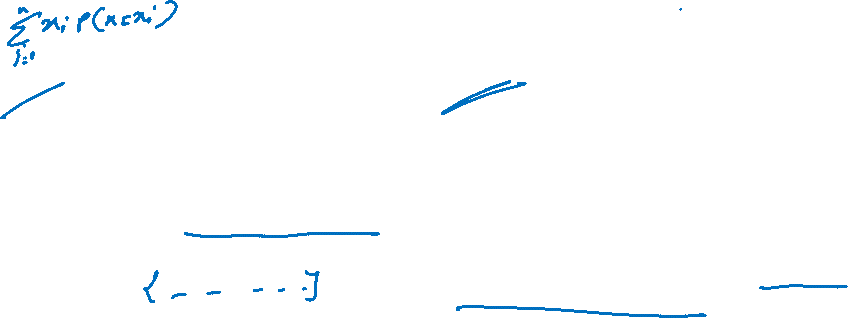 \sum_{i=0}^{n} x_i P(x=x_i)
{ _ _ _ . . . ]